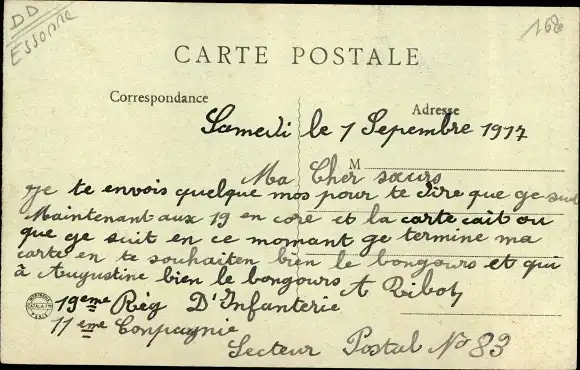 DD
Essonne
CARTE POSTALE
Correspondance
Adresse
Samedi le 1 Sepembre 1917
M
Ma Cher sœurs
ge te envois quelque mos pour te dire que ge suit
Maintenant aux 19 en core et la carte cait ou
que ge suit en ce momant ge termine ma
carte en te souhaiten bien le bongours et qui
à Augustine bien le bongours A Ribot
19eme Rég D'Infanterie
11eme Conpaynie
Secteur Postal No 83